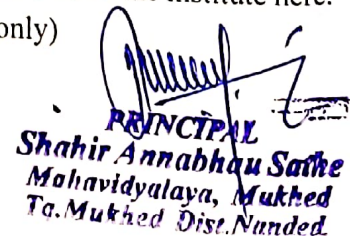 Institute here.
only)
PRINCIPAL
Shahir Annabhau Sathe
Mahavidyalaya, Mukhed
Tq.Mukhed Dist.Nanded